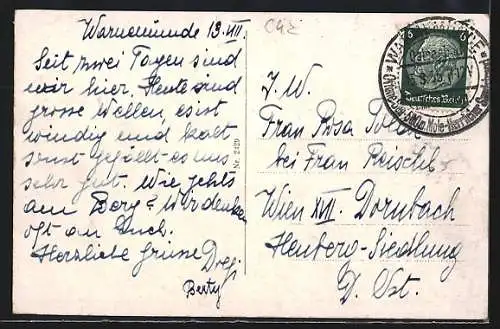 Warnemünde 13.VII.
Seit zwei Tagen sind
wir hier. Heute sind
grosse Wellen, es ist
windig und kalt
sonst gefällt es uns
sehr gut. Wie gehts
am Berg? Wir denken
oft an Euch.
Herzliche Grüsse
Berty
C42
Nr. 2429
6
Deutsches Reich
J. W.
Frau Rosa
bei Frau
Wien XVII. Dornbach
Heuberg-Siedlung
D. Öst.